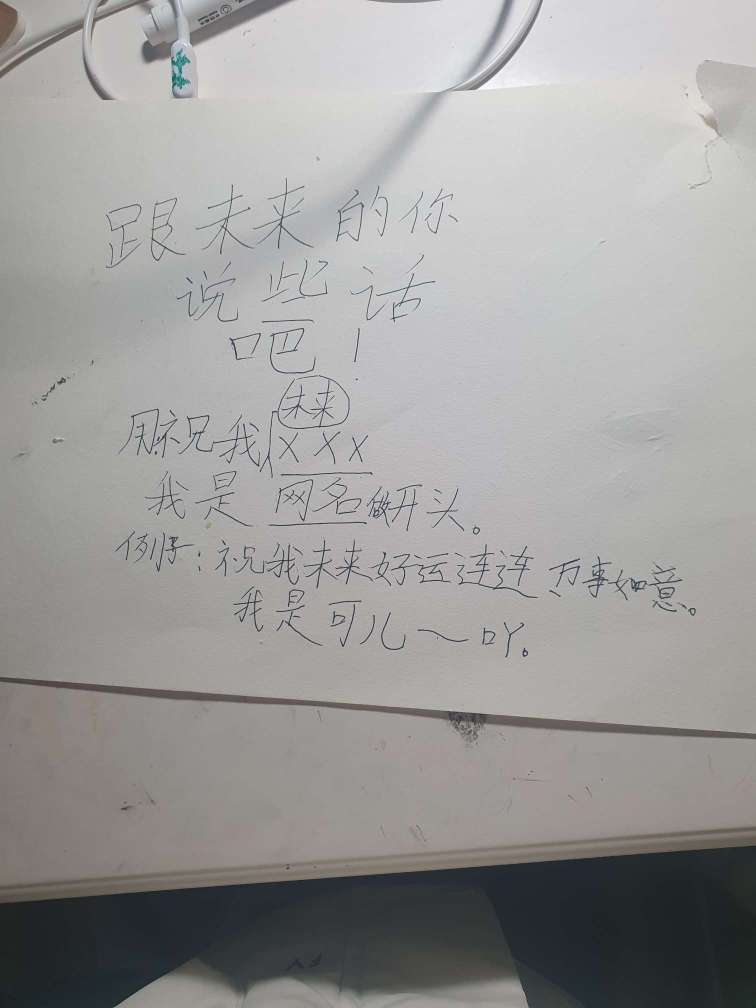 跟未来的你
说些话
吧！
未来
用祝我XXX
我是网名做开头。
例子：祝我未来好运连连、万事如意。
我是可儿～吖。